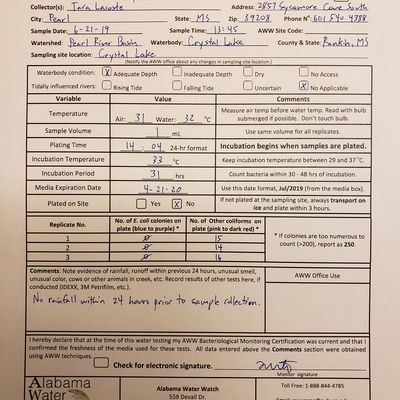 Collector(s): Tara Lacoste Address: 2857 Sycamore Cove South
City: Pearl State: MS Zip: 39208 Phone N° 601 540 4788
Sample Date: 6-21-19 Sample Time: 13:45 AWW Site Code:
Watershed: Pearl River Basin Waterbody: Crystal Lake County & State: Rankin, MS
Sampling site location: Crystal Lake
(Notify the AWW office about any changes in sampling site location.)
Waterbody condition: X Adequate Depth Inadequate Depth Dry No Access
Tidally influenced rivers: Rising Tide Falling Tide Uncertain X No Applicable
Variable Value Comments
Temperature Air: 31 Water: 32 °C Measure air temp before water temp. Read with bulb submerged if possible. Don't touch bulb.
Sample Volume 1 mL Use same volume for all replicates.
Plating Time 14 : 04 24-hr format Incubation begins when samples are plated.
Incubation Temperature 33 °C Keep incubation temperature between 29 and 37 °C.
Incubation Period 31 hrs Count bacteria within 30 - 48 hrs of incubation.
Media Expiration Date 4-21-20 Use this date format, Jul/2019 (from the media box).
Plated on Site Yes X No If not plated at the sampling site, always transport on ice and plate within 3 hours.
Replicate No. No. of E. coli colonies on plate (blue to purple) * No. of Other coliforms on plate (pink to dark red) *
1 0 15
2 0 14
3 0 16
* If colonies are too numerous to count (>200), report as 250.
Comments: Note evidence of rainfall, runoff within previous 24 hours, unusual smell, unusual color, cows or other animals in creek, etc. Record results of other tests here, if conducted (IDEXX, 3M Petrifilm, etc.)
AWW Office Use
No rainfall within 24 hours prior to sample collection.
I hereby declare that at the time of this water testing my AWW Bacteriological Monitoring Certification was current and that I confirmed the freshness of the media used for these tests. All data entered above the Comments section were obtained using AWW techniques.
Check for electronic signature.
Monitor signature
Alabama
Water
Alabama Water Watch
559 Devall Dr.
Toll Free: 1-888-844-4785